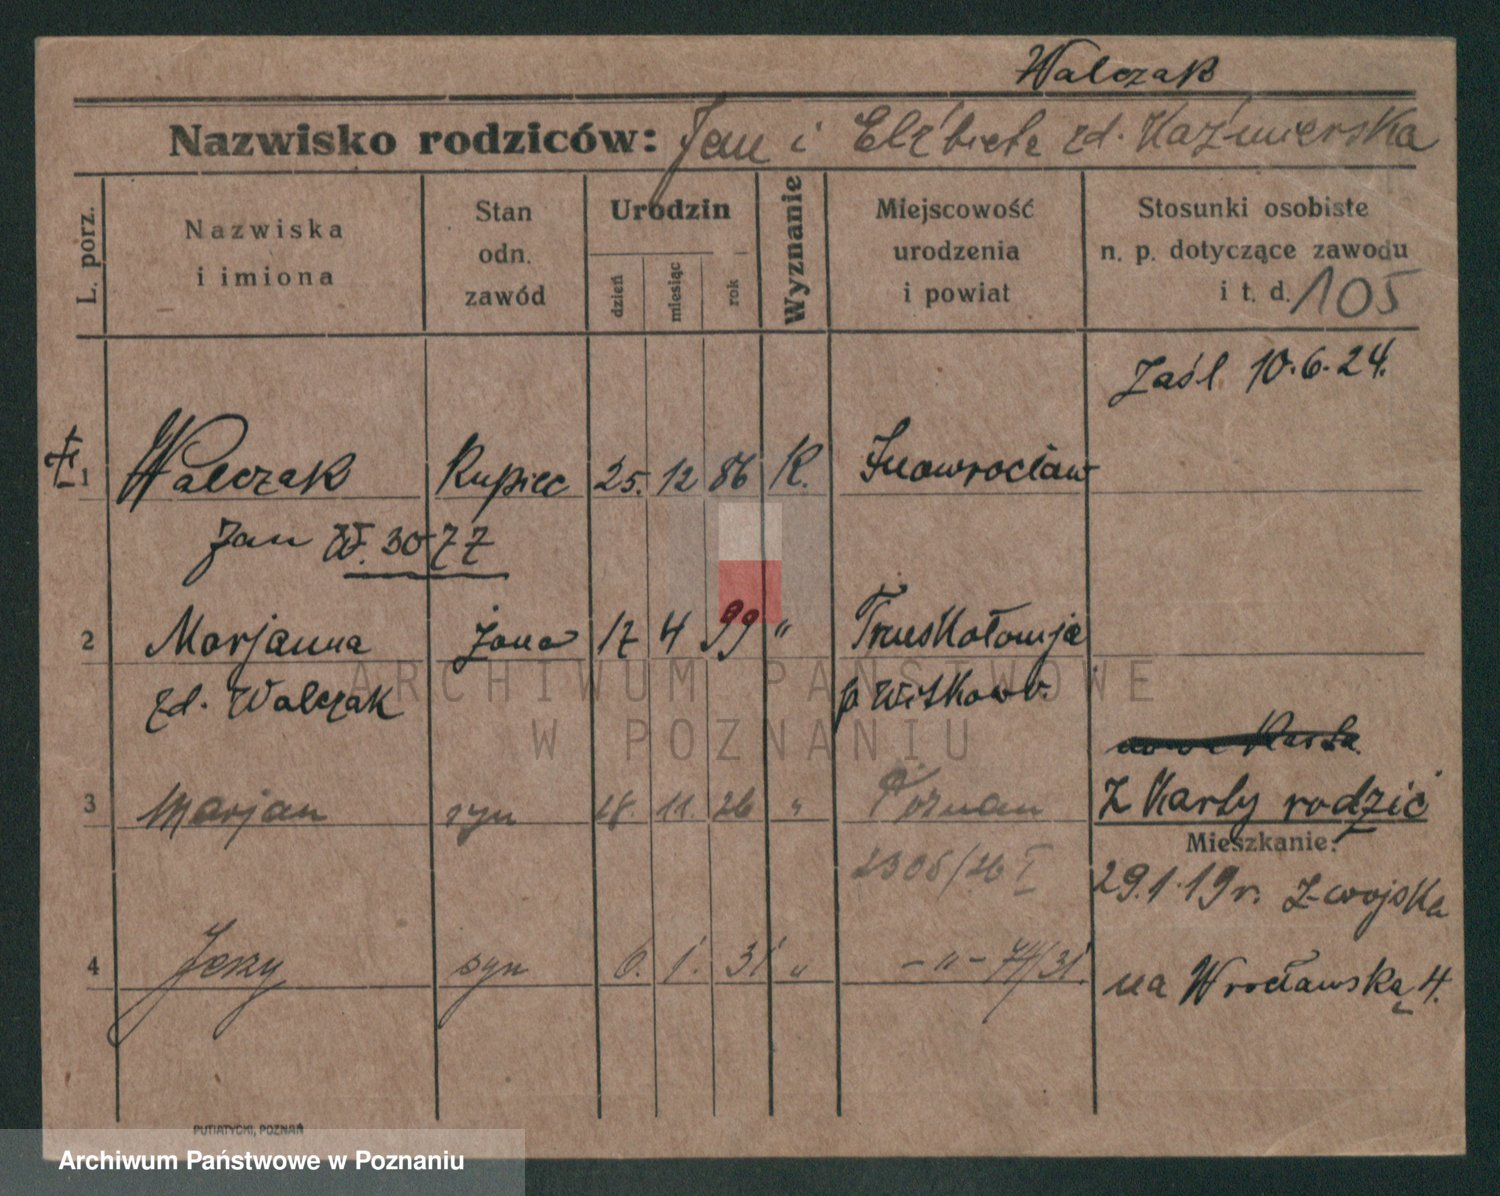 Walczak
Nazwisko rodziców: Jan i Elżbieta zd. Kaźmierska
L. porz.
Nazwiska
i imiona
Stan
odn.
zawód
Urodzin
dzień
miesiąc
rok
Wyznanie
Miejscowość
urodzenia
i powiat
Stosunki osobiste
n. p. dotyczące zawodu
i t. d. 105
Zaśl 10.6.24.
1 Walczak Kupiec 25. 12 86 K. Inowrocław
Jan 30
2 Marjanna żona 17 4 99 " Truskołomja
zd. Walczak p Witkow.
nowa Karta
3 Marjan syn 18. 11. 26 " Poznań Z Karty rodzić
Mieszkanie:
2306/26 I 29.1.19 r. Z wojska
4 Jerzy syn 6. 1. 31 " -"- 74/31 na Wrocławską 4.
PUTIATYCKI, POZNAŃ
ARCHIWUM PAŃSTWOWE
W POZNANIU
Archiwum Państwowe w Poznaniu